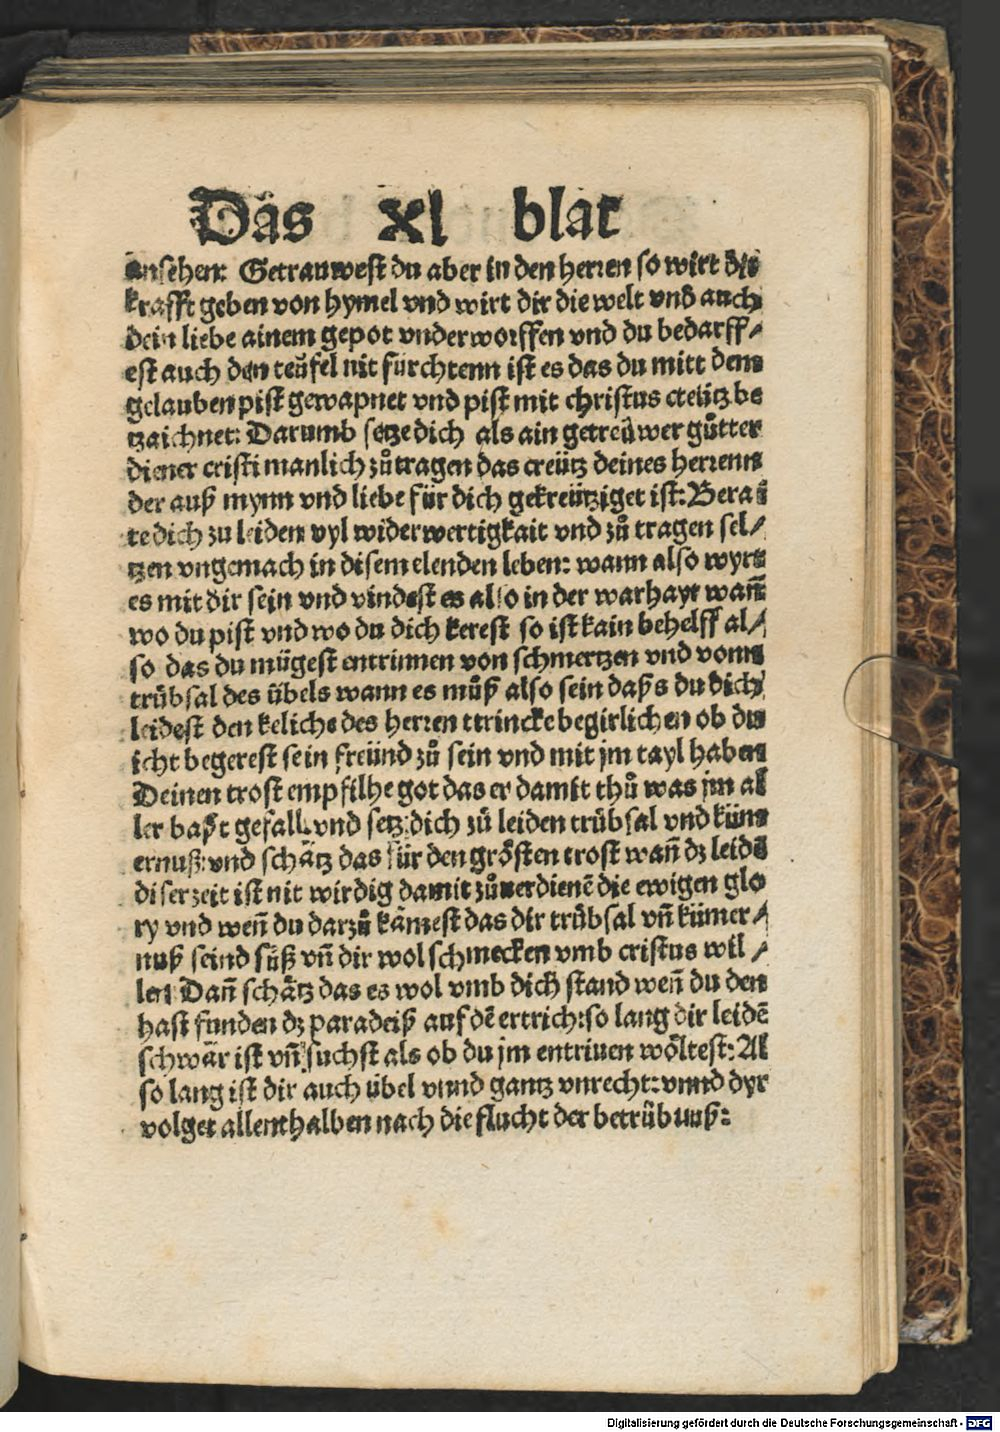 Das Xl blat
ansehen: Getrauwest du aber in den herren so wirt dir
krafft geben von hymel vnd wirt dir die welt vnd auch
dein liebe ainem gepot vnderworffen vnd du bedarff⸗
est auch den teüfel nit fürchtenn ist es das du mitt dem
gelauben pist gewapnet vnd pist mit christus cteütz be
tzaichnet: Darumb setze dich als ain getreüwer gůtter
diener cristi manlich zůtragen das creütz deines herrenn
der auß mynn vnd liebe für dich gekreütziget ist: Berai
te dich zu leiden vyl widerwertigkait vnd zů tragen sel⸗
tzen vngemach in disem elenden leben: wann also wyrt
es mit dir sein vnd vindest es also in der warhayt wañ
wo du pist vnd wo du dich kerest so ist kain behelff al⸗
so das du mügest entrinnen von schmertzen vnd vonn
trübsal des übels wann es můß also sein daß s du dich
leidest den keliche des herren ttrincke begirlichen ob du
icht begerest sein freünd zů sein vnd mit jm tayl haben
Deinen trost empfilhe got das er damit thů was jm al
ler baßt gefall. vnd setz dich zů leiden trübsal vnd küm
ernuß: vnd schätz das für den grösten trost wañ dz leidē
diser zeit ist nit wirdig damit zůuerdienē die ewigen glo
ry vnd weñ du darzů kämest das dir trübsal vñ kümer⸗
nuß seind süß vñ dir wol schmecken vmb cristus wil⸗
len Dañ schätz das es wol vmb dich stand weñ du den
hast funden dz paradeiß auf dē ertrich: so lang dir leidē
schwär ist vñ suchst als ob du jm entriuen wöltest: Al
so lang ist dir auch übel vnnd gantz vnrecht: vnnd dyr
volget allenthalben nach die flucht der betrübnuß:
Digitalisierung gefördert durch die Deutsche Forschungsgemeinschaft - DFG